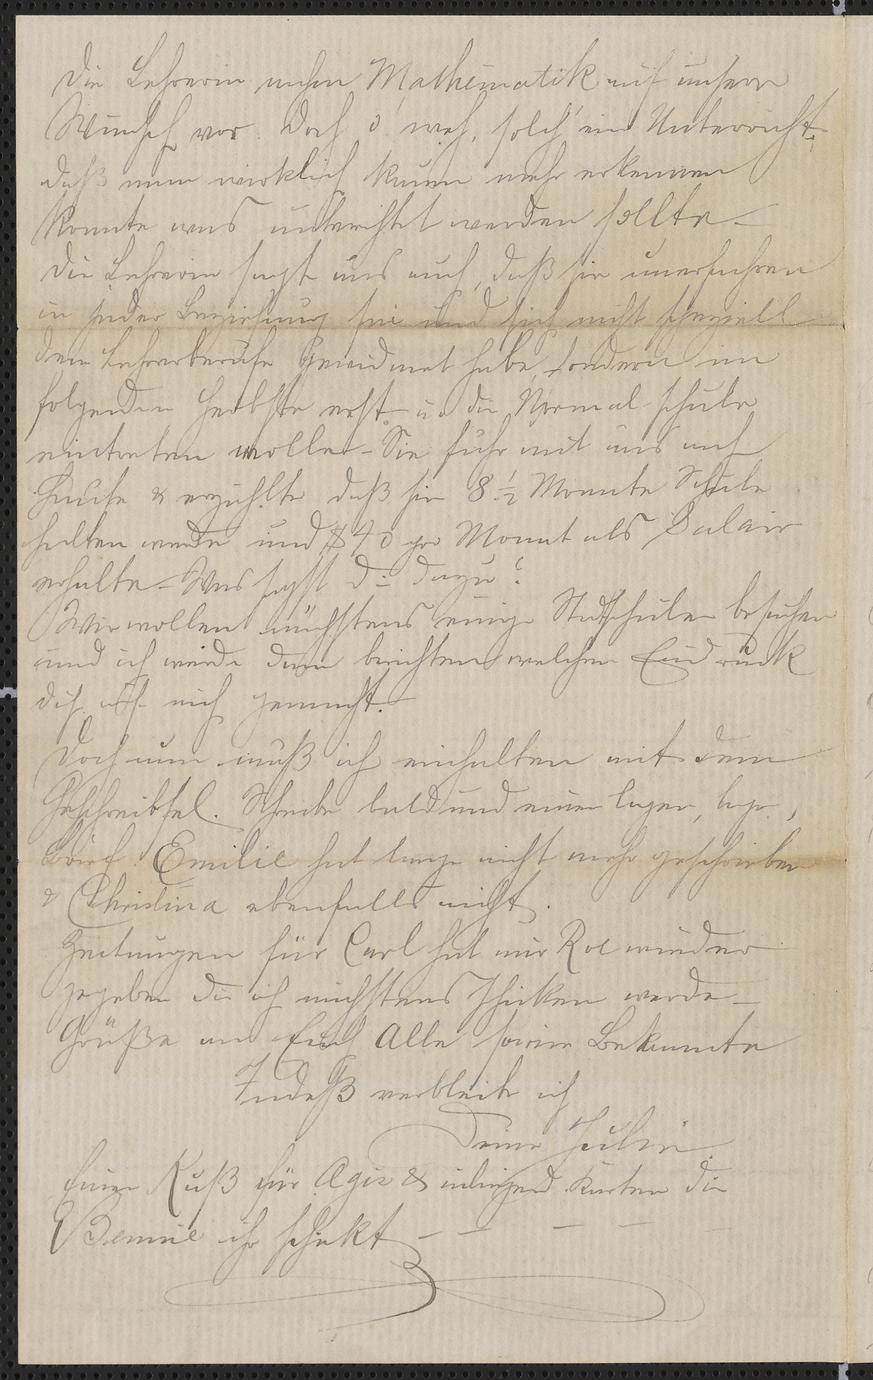 Die Lehrerin nahm Mathematik auf unsern
Wunsch vor. Doch o weh, solch' ein Unterricht,
daß man wirklich kaum mehr erkennen
konnte was unterichtet werden sollte –
Die Lehrerin sagt uns auch, daß sie unerfahren
in jeder Beziehung sei und sich nicht speziell
dem Lehrerberufe gewidmet habe sondern im
folgenden Herbste erst in die Normal schule
eintreten wolle – Sie fuhr mit uns nach
Hause & erzählte daß sie 8 ½ Monate Schule
halten werde und $40 pro Monat als Salair
erhalte – Was sagst Du dazu?
Wir wollen nächstens einige Stadtschulen besuchen
und ich werde dann berichten welchen Eindruck
dieß auf mich gemacht. –
Doch nun muß ich einhalten mit dem
Geschreibsel. Schreibe bald und einen langen,
Brief. Emilie hat lange nicht mehr geschrieben
& Christina ebenfalls nicht.
Zeitungen für Carl hat mir Roe wieder
gegeben die ich nächstens schicken werde –
Grüße an Euch Alle sowie Bekannte
Indeß verbleibe ich
Deine Julie.
Einen Kuß für Agie & inliegend Karten die
Bennie ihr schickt – – – – –